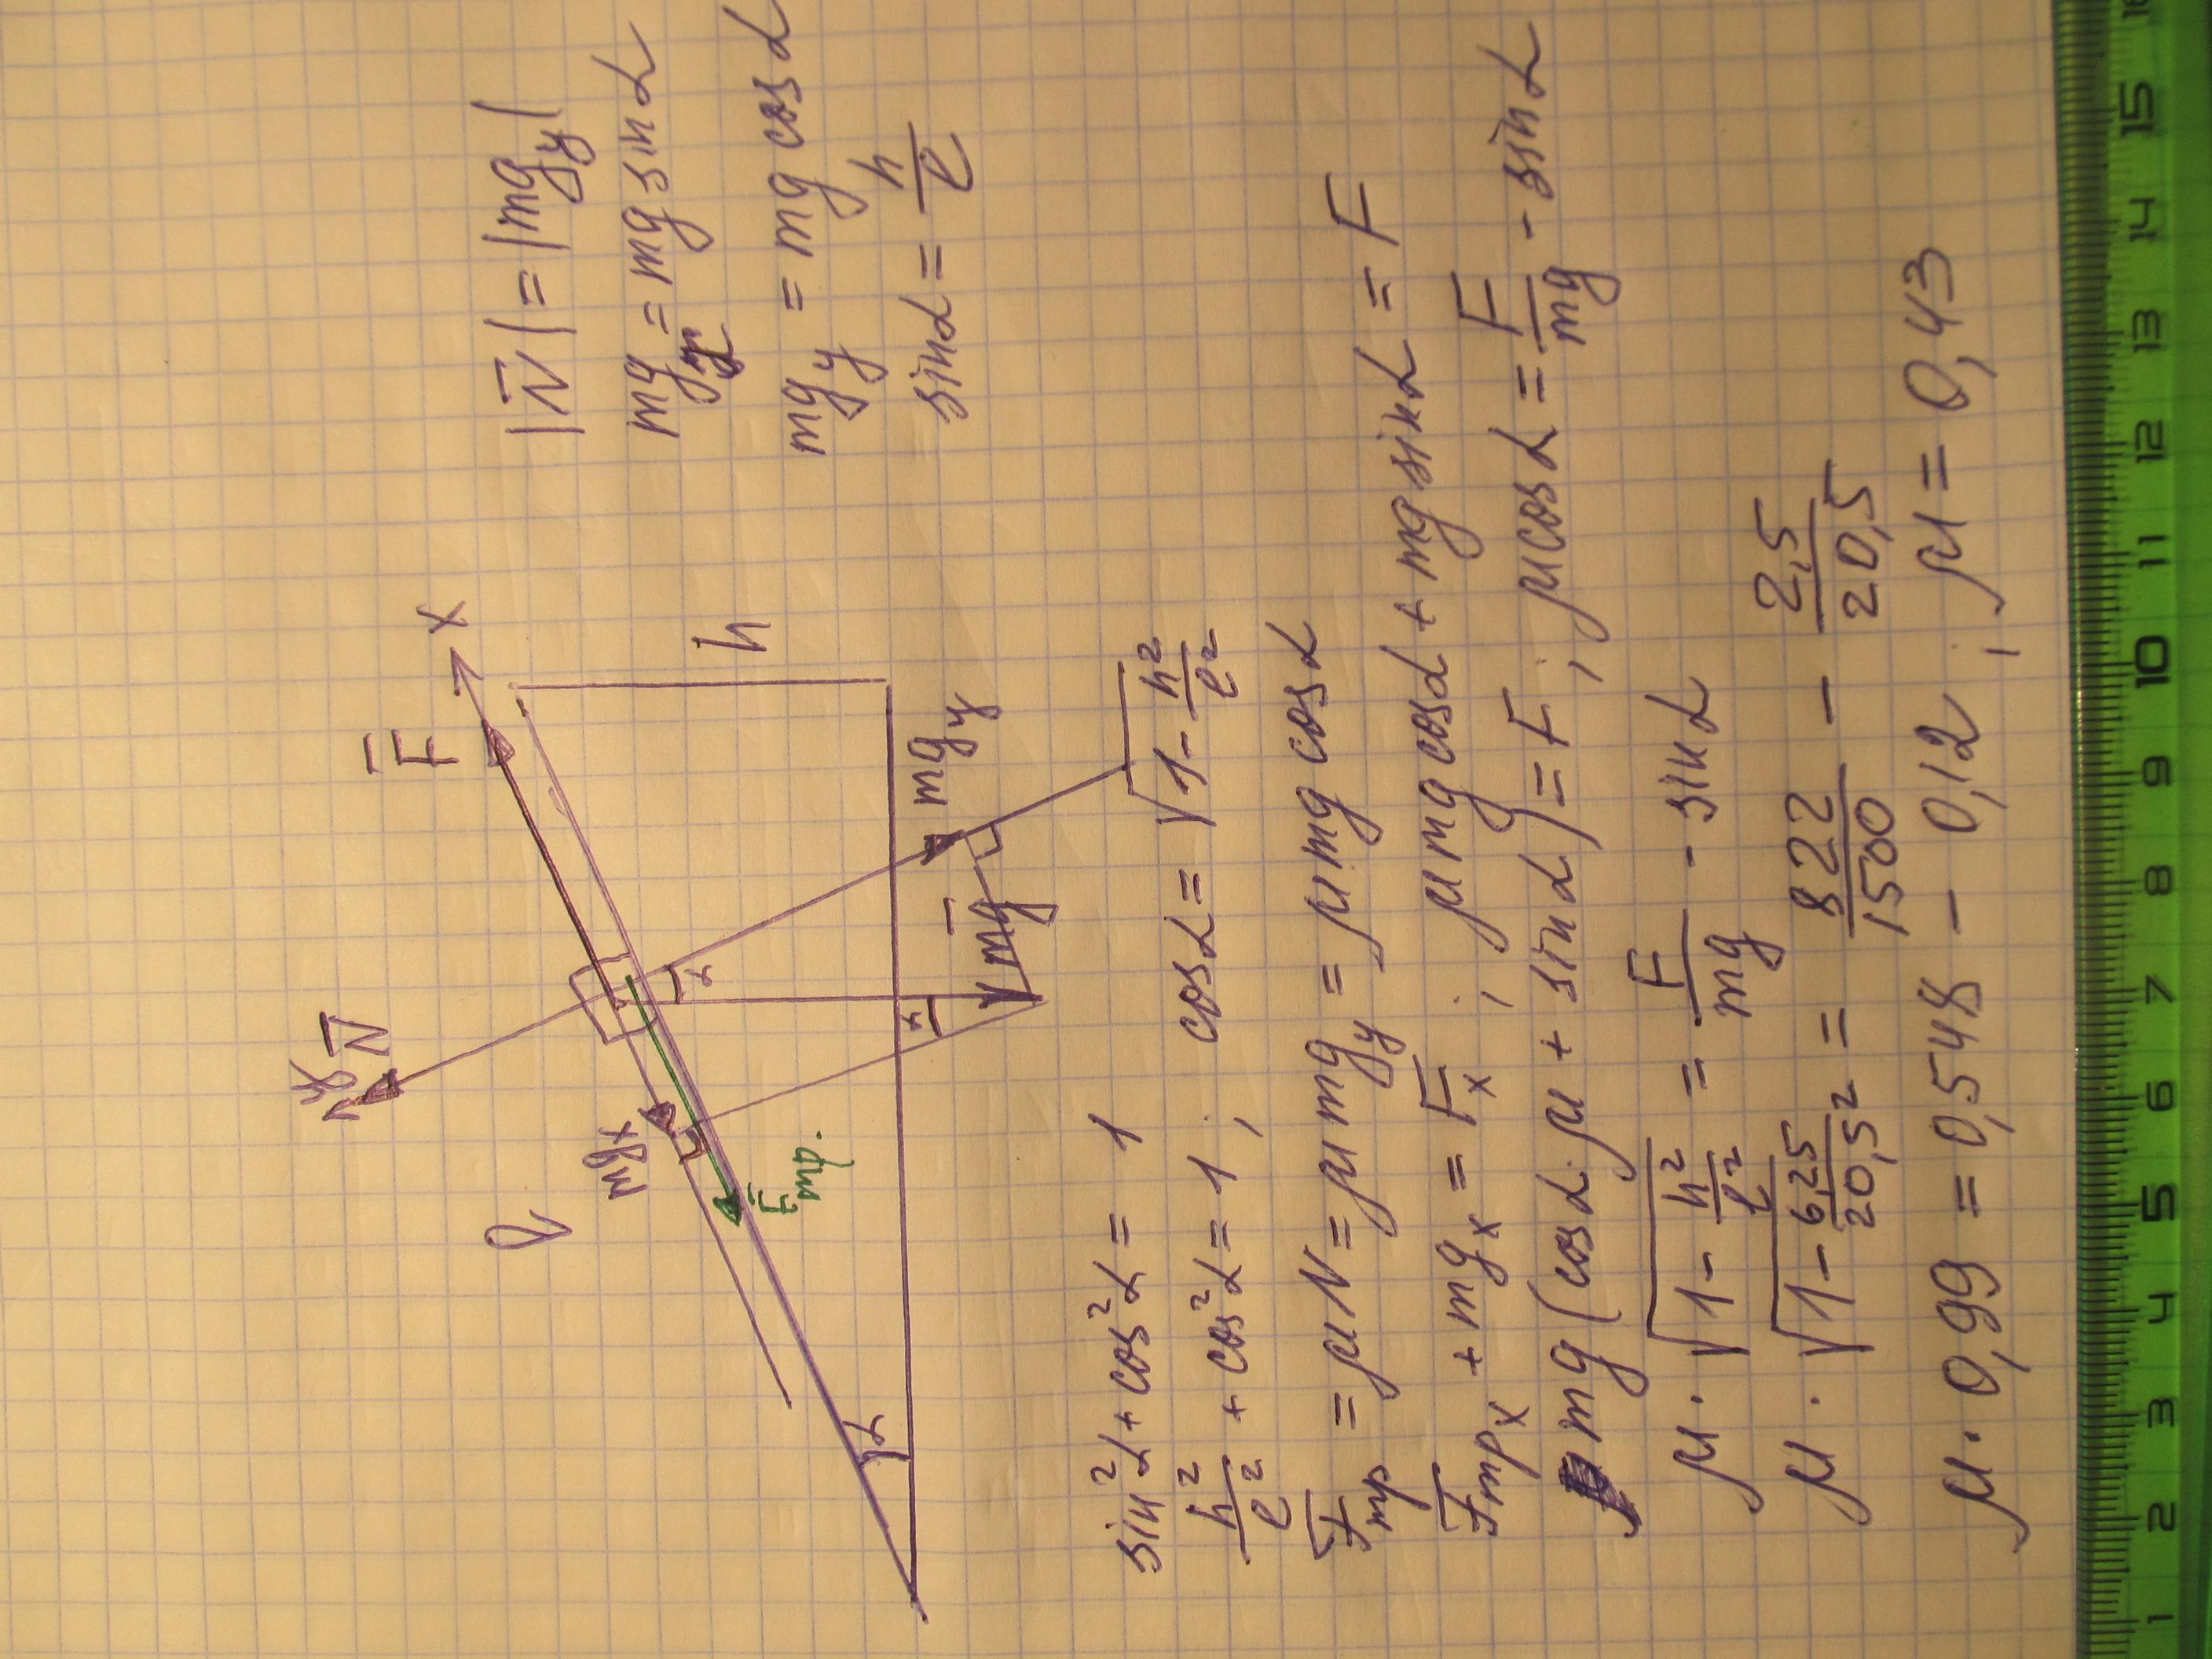 y
N̄
F̄
x
l
mgx
F̄тр.
h
α
α
α
mgy
mḡ
|N̄| = |mgy|
mgx = mg sin α
mgy = mg cos α
sin α = h/l
sin²α + cos²α = 1
h²/l² + cos²α = 1 ; cos α = √(1 - h²/l²)
F̄тр = μN = μmgy = μmg cos α
F̄трx + mgx = F̄x ; μmg cos α + mg sin α = F
mg(cos α·μ + sin α) = F ; μ cos α = F/mg - sin α
μ·√(1 - h²/l²) = F/mg - sin α
μ·√(1 - 6,25/20,5²) = 822/1500 - 2,5/20,5
μ·0,99 = 0,548 - 0,12 ; μ = 0,43
1 2 3 4 5 6 7 8 9 10 11 12 13 14 15 16